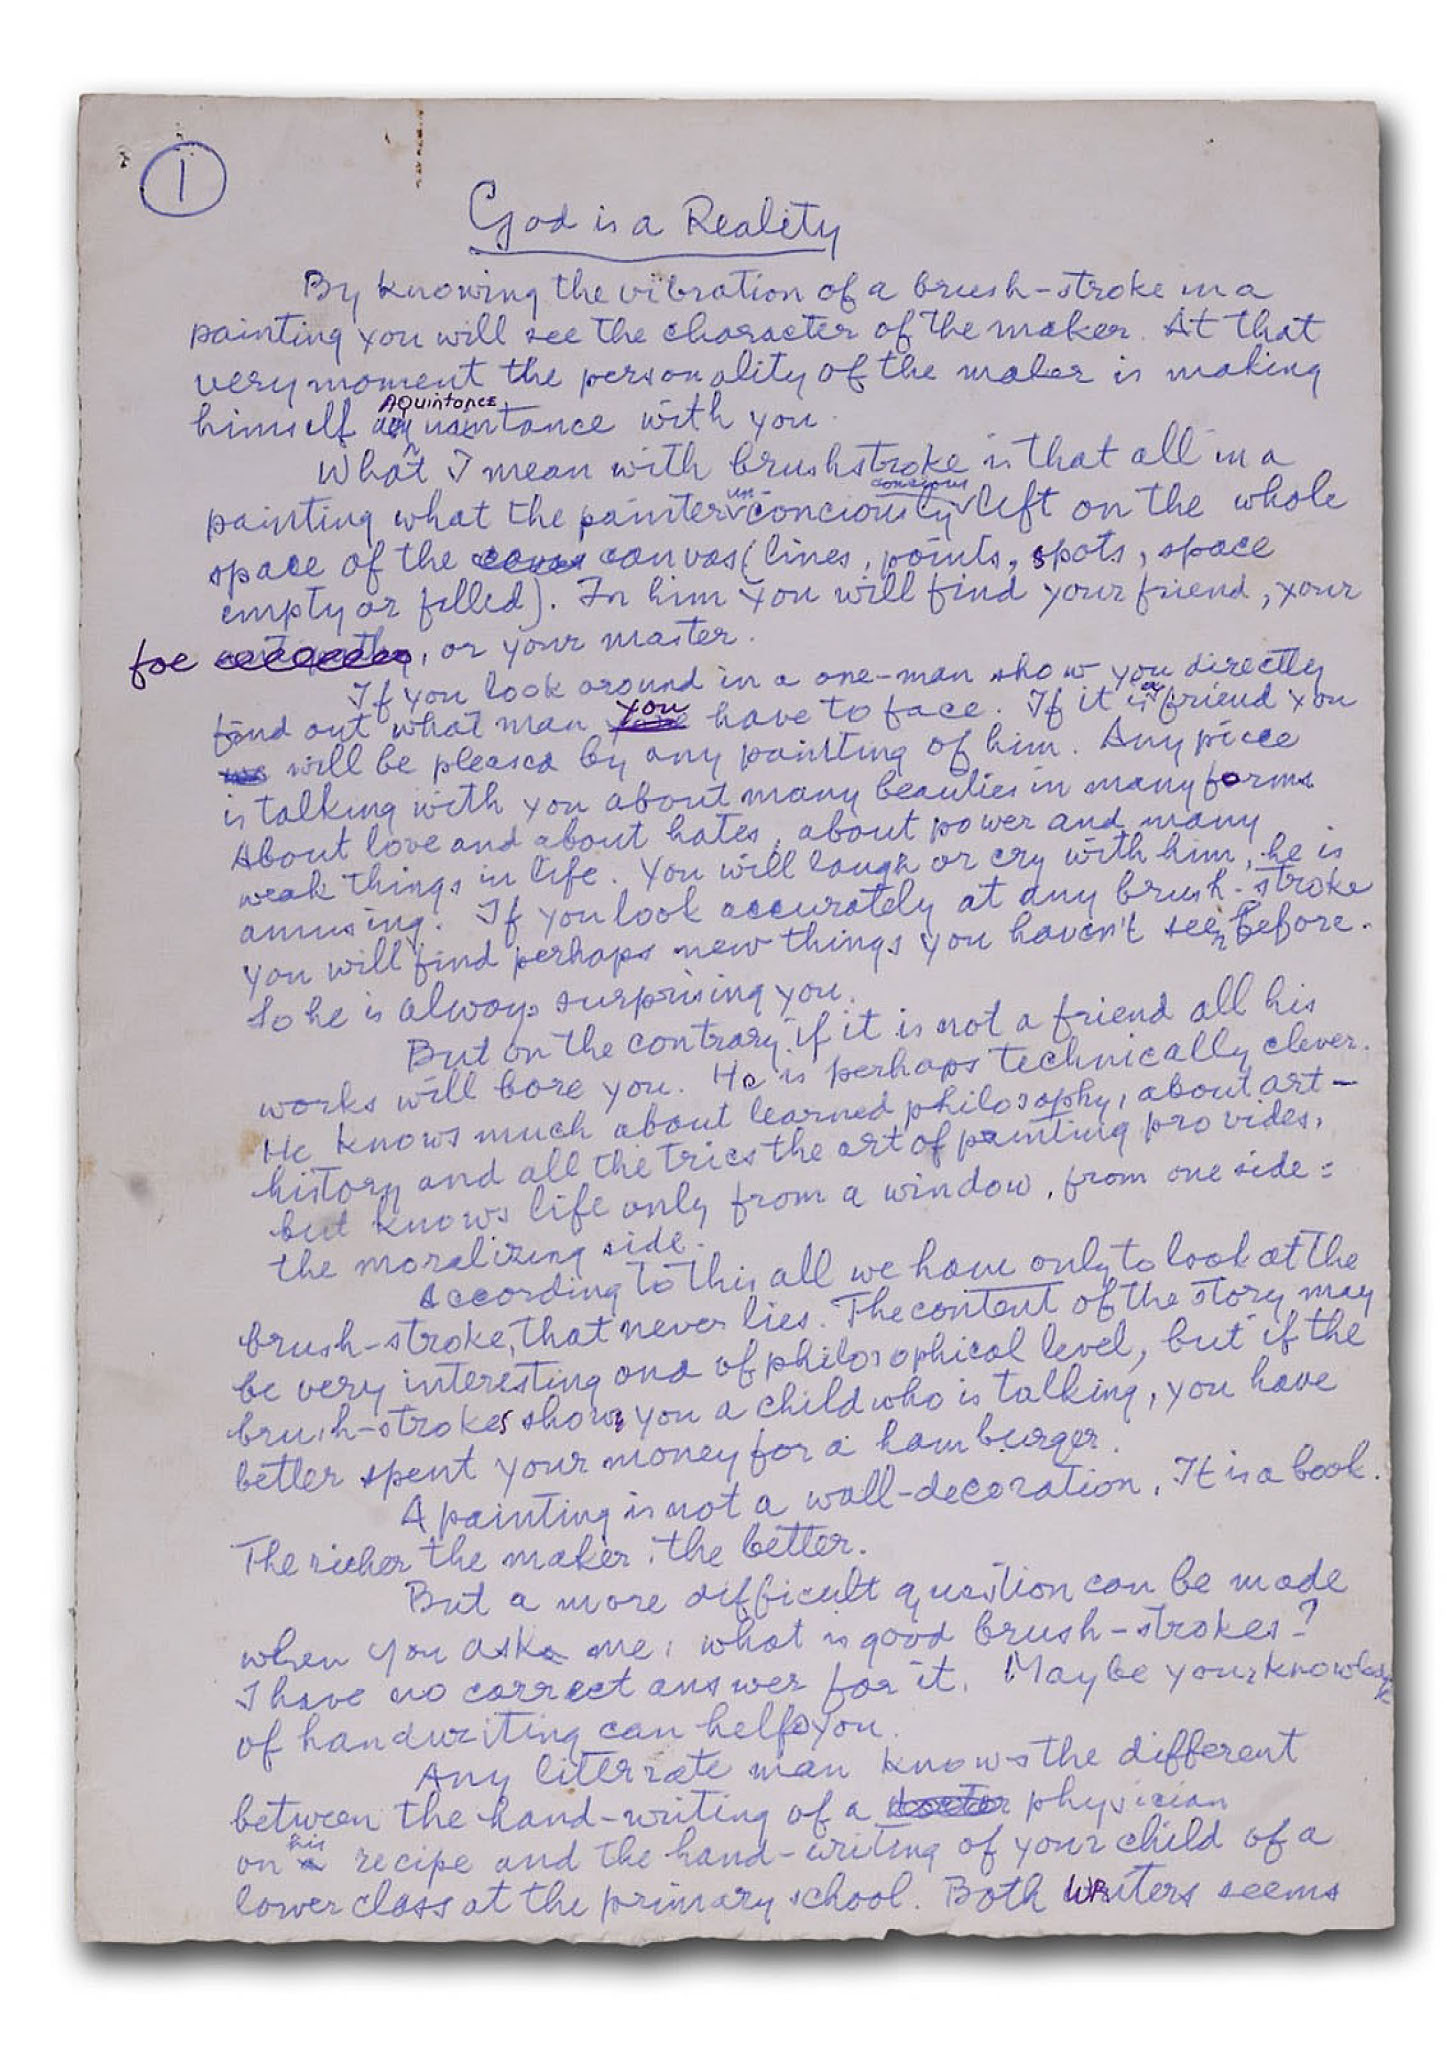 1
God is a Reality
By knowing the vibration of a brush-stroke in a
painting you will see the character of the maker. At that
very moment the personality of the maker is making
Aquintance
himself tance with you.
What I mean with brushstroke is that all in a
un conscious
painting what the painter conciously left on the whole
space of the canvas (lines, points, spots, space
empty or filled). In him you will find your friend, your
foe, or your master.
If you look around in a one-man show you directly
find out what man you have to face. If it is a friend you
will be pleased by any painting of him. Any piece
is talking with you about many beauties in many forms
About love and about hates, about power and many
weak things in life. You will laugh or cry with him, he is
amusing. If you look accurately at any brush-stroke
you will find perhaps new things you haven't seen before.
So he is always surprising you.
But on the contrary if it is not a friend all his
works will bore you. He is perhaps technically clever.
He knows much about learned philosophy, about art-
history and all the trics the art of painting provides,
but knows life only from a window, from one side:
the moralizing side.
According to this all we have only to look at the
brush-stroke, that never lies. The content of the story may
be very interesting and of philosophical level, but if the
brush-strokes shows you a child who is talking, you have
better spent your money for a hamburger.
A painting is not a wall-decoration. It is a book.
The richer the maker, the better.
But a more difficult question can be made
when you ask me, what is good brush-strokes?
I have no correct answer for it. Maybe your knowledge
of handwriting can help you.
Any literate man knows the different
between the hand-writing of a physician
on his recipe and the hand-writing of your child of a
lower class at the primary school. Both writers seems